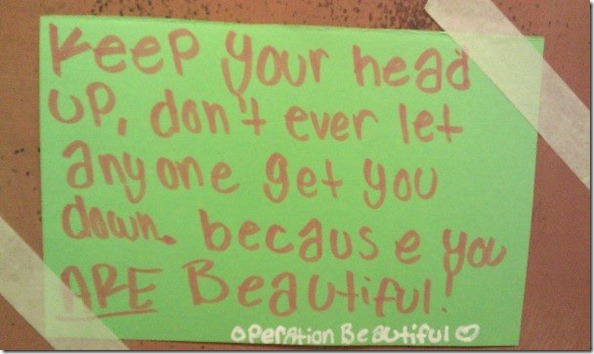 Keep your head
up, don't ever let
anyone get you
down. because you
ARE Beautiful!
operation Beautiful